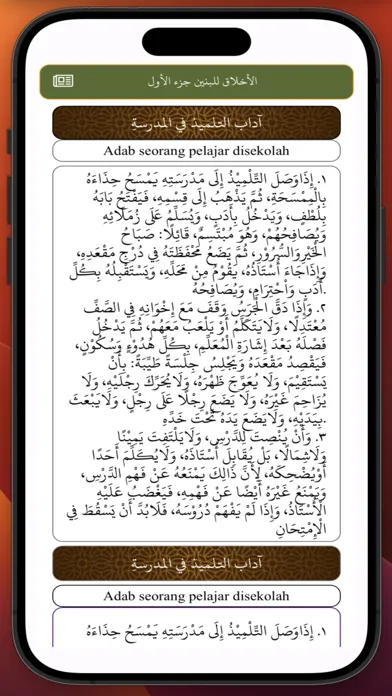 الأخلاق للبنين جزء الأول
آداب التلميذ في المدرسة
Adab seorang pelajar disekolah
١. إِذَاوَصَلَ التِّلْمِيْذُ إِلَى مَدْرَسَتِهِ يَمْسَحُ حِذَاءَهُ
بِالْمِمْسَحَةِ، ثُمَّ يَذْهَبُ إِلَى قِسْمِهِ، فَيَفْتَحُ بَابَهُ
بِلُطْفٍ، وَيَدْخُلُ بِأَدَبٍ، وَيُسَلِّمُ عَلَى زُمَلَائِهِ
وَيُصَافِحُهُمْ، وَهُوَ مُبْتَسِمٌ، قَائِلًا: صَبَاحُ
الْخَيْرِوَالسُّرُوْرِ، ثُمَّ يَضَعُ مَحْفَظَتَهُ فِي دُرْجِ مَقْعَدِهِ،
وَإِذَاجَاءَ أُسْتَاذُهُ، يَقُوْمُ مِنْ مَحَلِّهِ، وَيَسْتَقْبِلُهُ بِكُلِّ
أَدَبٍ وَاحْتِرَامٍ، وَيُصَافِحُهُ.
٢. وَإِذَا دَقَّ الْجَرَسُ وَقَفَ مَعَ إِخْوَانِهِ فِي الصَّفِّ
مُعْتَدِلًا، وَلَايَتَكَلَّمُ أَوْ يَلْعَبُ مَعَهُمْ، ثُمَّ يَدْخُلُ
فَصْلَهُ بَعْدَ إِشَارَةِ الْمُعَلِّمِ، بِكُلِّ هُدُوْءٍ وَسُكُوْنٍ،
فَيَقْصِدُ مَقْعَدَهُ وَيَجْلِسُ جِلْسَةً طَيِّبَةً: بِأَنْ
يَسْتَقِيْمَ، وَلَا يُعَوِّجَ ظَهْرَهُ، وَلَايُحَرِّكَ رِجْلَيْهِ، وَلَا
يُزَاحِمَ غَيْرَهُ، وَلَا يَضَعَ رِجْلًا عَلَى رِجْلٍ، وَلَايَبْعَثَ
بِيَدَيْهِ، وَلَايَضَعَ يَدَهُ تَحْتَ خَدِّهِ.
٣. وَأَنْ يُنْصِتَ لِلدَّرْسِ، وَلَايَلْتَفِتَ يَمِيْنًا
وَلَاشِمَالًا، بَلْ يُقَابِلَ أُسْتَاذَهُ، وَلَايُكَلِّمَ أَحَدًا
أَوْيُضْحِكَهُ، لِأَنَّ ذَالِكَ يَمْنَعُهُ عَنْ فَهْمِ الدَّرْسِ،
وَيَمْنَعُ غَيْرَهُ أَيْضًا عَنْ فَهْمِهِ، فَيَغْضَبُ عَلَيْهِ
الْأُسْتَاذُ، وَإِذَا لَمْ يَفْهَمْ دُرُوْسَهُ، فَلَابُدَّ أَنْ يَسْقُطَ فِي
الْإِمْتِحَانِ
آداب التلميذ في المدرسة
Adab seorang pelajar disekolah
١. إِذَاوَصَلَ التِّلْمِيْذُ إِلَى مَدْرَسَتِهِ يَمْسَحُ حِذَاءَهُ